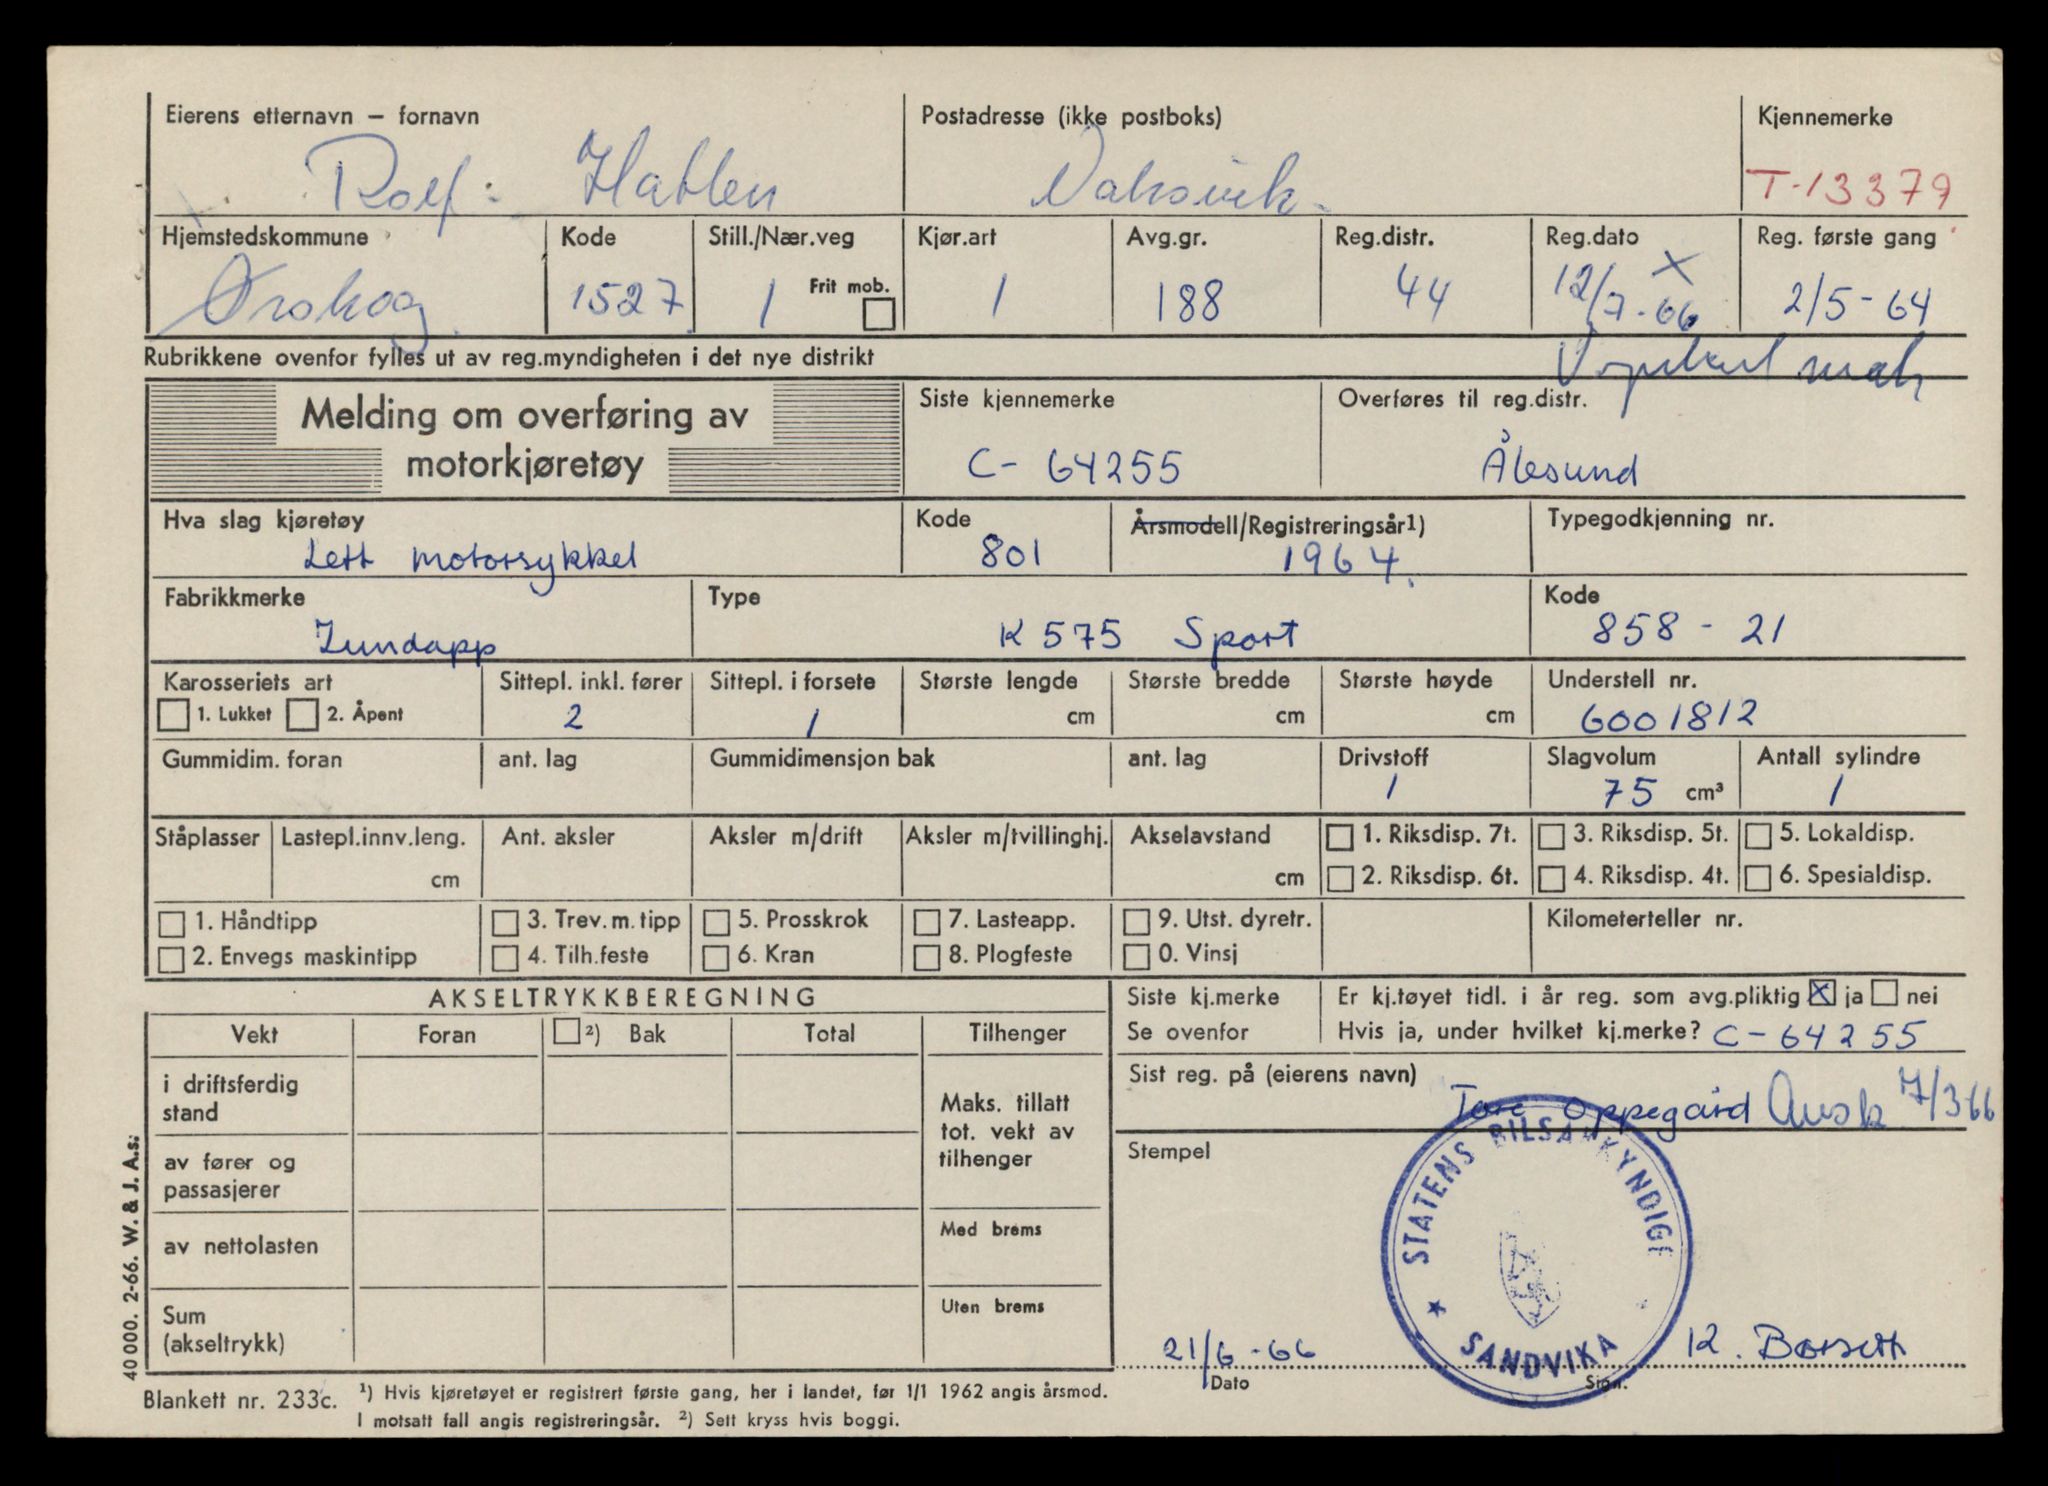 Eierens etternavn – fornavn Postadresse (ikke postboks) Kjennemerke
Rolf Hatlen Vaksvik T-13379
Hjemstedskommune Kode Still./Nær.veg Kjør.art Avg.gr. Reg.distr. Reg.dato Reg. første gang
Ørskog 1527 1 Frit mob. 1 188 44 12/7-66 2/5-64
Rubrikkene ovenfor fylles ut av reg.myndigheten i det nye distrikt
Melding om overføring av motorkjøretøy
Siste kjennemerke Overføres til reg.distr.
C- 64255 Ålesund
Hva slag kjøretøy Kode Årsmodell/Registreringsår1) Typegodkjenning nr.
Lett motorsykkel 801 1964.
Fabrikkmerke Type Kode
Zundapp K 575 Sport 858 - 21
Karosseriets art Sittepl. inkl. fører Sittepl. i forsete Største lengde Største bredde Største høyde Understell nr.
1. Lukket 2. Åpent 2 1 cm cm cm 6001812
Gummidim. foran ant. lag Gummidimensjon bak ant. lag Drivstoff Slagvolum Antall sylindre
1 75 cm³ 1
Ståplasser Lastepl.innv.leng. Ant. aksler Aksler m/drift Aksler m/tvillinghj. Akselavstand 1. Riksdisp. 7t. 3. Riksdisp. 5t. 5. Lokaldisp.
cm cm 2. Riksdisp. 6t. 4. Riksdisp. 4t. 6. Spesialdisp.
1. Håndtipp 3. Trev. m. tipp 5. Prosskrok 7. Lasteapp. 9. Utst. dyretr. Kilometerteller nr.
2. Envegs maskintipp 4. Tilh.feste 6. Kran 8. Plogfeste 0. Vinsj
AKSELTRYKKBEREGNING
Vekt Foran ²) Bak Total Tilhenger
i driftsferdig stand
Maks. tillatt tot. vekt av tilhenger
av fører og passasjerer
av nettolasten
Med brems
Sum (akseltrykk)
Uten brems
Siste kj.merke Er kj.tøyet tidl. i år reg. som avg.pliktig X ja nei
Se ovenfor Hvis ja, under hvilket kj.merke? C-64255
Sist reg. på (eierens navn)
Tore Oppegård 7/3 66
Stempel
STATENS BILSAKKYNDIGE
SANDVIKA
21/6-66
Dato Sign.
40 000. 2-66. W. & J. A.s.
Blankett nr. 233c. ¹) Hvis kjøretøyet er registrert første gang, her i landet, før 1/1 1962 angis årsmod.
I motsatt fall angis registreringsår. ²) Sett kryss hvis boggi.